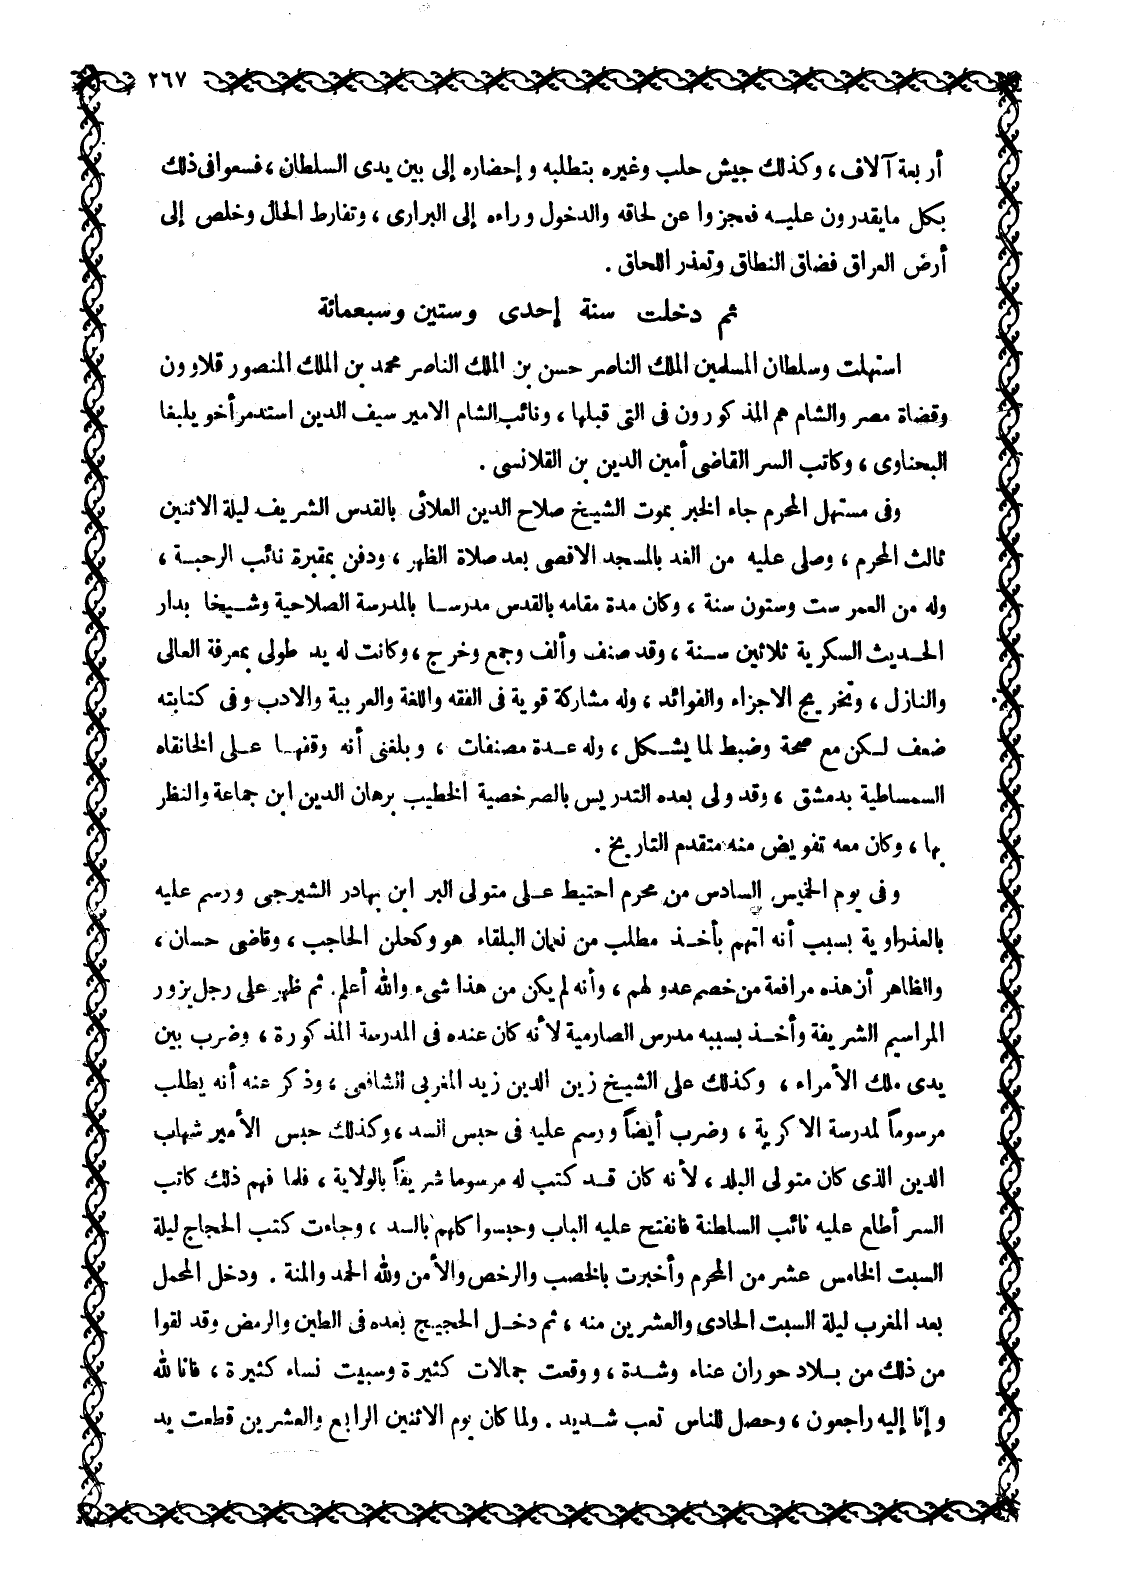 ٢٦٧
أربعة آلاف ، وكذلك جيش حلب وغيره بتطلبه و إحضاره إلى بين يدى السلطان ، فسعوا فى ذلك
بكل مايقدرون عليـه فعجزوا عن لحاقه والدخول وراءه إلى البرارى ، وتفارط الحال وخلص إلى
أرض العراق فضاق النطاق وتعذر اللحاق .
ثم دخلت سنة إحدى وستين وسبعمائة
استهلت وسلطان المسلمين الملك الناصر حسن بن الملك الناصر محمد بن الملك المنصور قلاوون
وقضاة مصر والشام هم المذكورون فى التى قبلها ، ونائب الشام الامير سيف الدين استدمر أخو يلبغا
البحناوى ، وكاتب السر القاضى أمين الدين بن القلانسى .
وفى مستهل المحرم جاء الخبر بموت الشيخ صلاح الدين العلائى بالقدس الشريف ليلة الاثنين
ثالث المحرم ، وصلى عليه من الغد بالمسجد الاقصى بعد صلاة الظهر ، ودفن بمقبرة نائب الرحبـة ،
وله من العمر ست وستون سنة ، وكان مدة مقامه بالقدس مدرسـا بالمدرسة الصلاحية وشـيخا بدار
الحـديث السكرية ثلاثين سـنة ، وقد صنف وألف وجمع وخرج ، وكانت له يد طولى بمعرفة العالى
والنازل ، وتخريج الاجزاء والفوائد ، وله مشاركة قوية فى الفقه واللغة والعربية والادب وفى كتابته
ضعف لـكن مع صحة وضبط لما يشـكل ، وله عـدة مصنفات ، وبلغنى أنه وقفهـا عـلى الخانقاه
السمساطية بدمشق ، وقد ولى بعده التدريس بالصرخصية الخطيب برهان الدين ابن جماعة والنظر
بها ، وكان معه تفويض منه متقدم التاريخ .
وفى يوم الخميس السادس من محرم احتيط عـلى متولى البر ابن بهادر الشيرجى ورسم عليه
بالعذراوية بسبب أنه اتهم بأخـذ مطلب من نعمان البلقاء هو وكحلن الحاجب ، وقاضى حسان ،
والظاهر أن هذه مرافعة من خصم عدو لهم ، وأنه لم يكن من هذا شىء والله أعلم. ثم ظهر على رجل بزور
المراسيم الشريفة وأخـذ بسببه مدرس الصارمية لأنه كان عنده فى المدرسة المذكورة ، وضرب بين
يدى ملك الأمراء ، وكذلك على الشيخ زين الدين زيد المغربى الشافعى ، وذكر عنه أنه يطلب
مرسوماً لمدرسة الاكرية ، وضرب أيضاً ورسم عليه فى حبس السد ، وكذلك حبس الأمير شهاب
الدين الذى كان متولى البلد ، لأنه كان قـد كتب له مرسوما شريفاً بالولاية ، فلما فهم ذلك كاتب
السر أطلع عليه نائب السلطنة فانفتح عليه الباب وحبسوا كلهم بالسد ، وجاءت كتب الحجاج ليلة
السبت الخامس عشر من المحرم وأخبرت بالخصب والرخص والأمن ولله الحمد والمنة . ودخل المحمل
بعد المغرب ليلة السبت الحادى والعشرين منه ، ثم دخـل الحجيج بعده فى الطين والرمض وقد لقوا
من ذلك من بـلاد حوران عناء وشـدة ، ووقعت جمالات كثيرة وسبيت نساء كثيرة ، فانا لله
و إنا إليه راجعون ، وحصل للناس تعب شـديد . ولما كان يوم الاثنين الرابع والعشرين قطعت يد